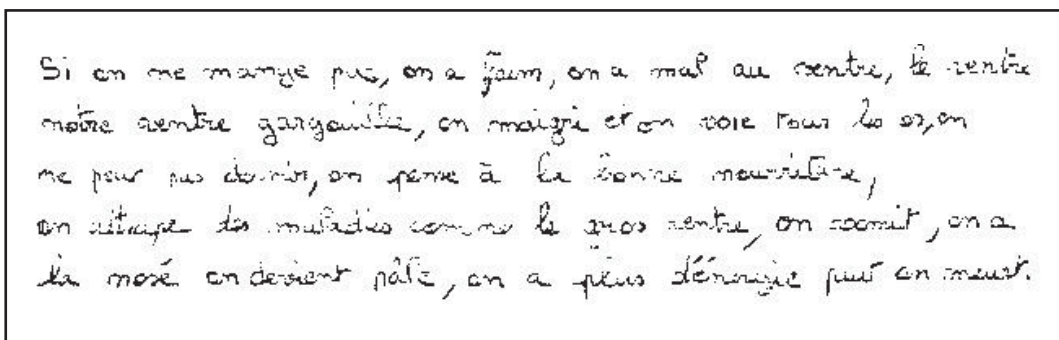 Si on ne mange pas, on a faim, on a mal au ventre, le ventre
notre ventre gargouille, on maigri et on voie tous les os, on
ne peur pas dormir, on pense à la bonne nourriture,
on attrape des maladies comme le gros ventre, on vomit, on a
la nosé on devient pâle, on a plus d'énergie puis on meurt.